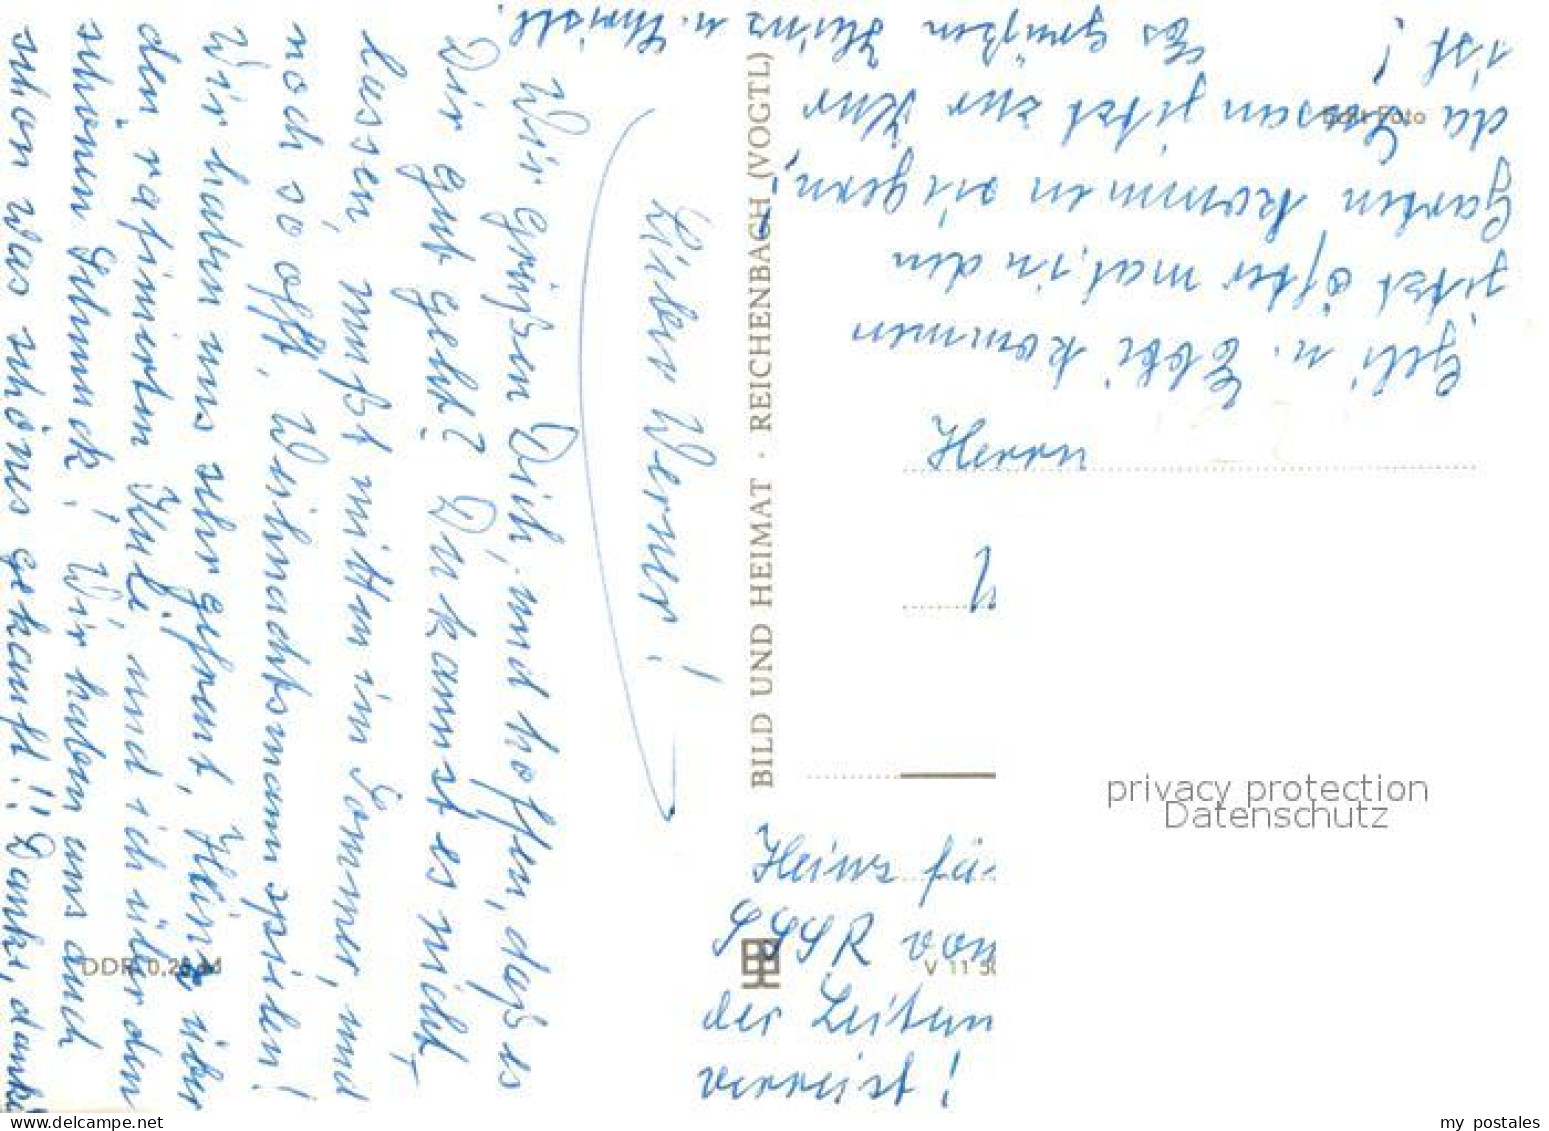 Lieber Werner!
Wir grüßen Dich, und hoffen, daß es
Dir gut geht? Du kannst es nicht
lassen, mußt mitten im Sommer, und
noch so oft, Weihnachtsmann spielen!
Wir haben uns sehr gefreut, Heinz über
den rafinierten Kuli, und ich über den
schönen Schmuck! Wir haben uns auch
schon was schönes gekauft!! Danke, danke
Heinz fä
SSSR von
der Leitun
verreist!
Geli u. Ebbi kommen
jetzt öfter mal in den
Garten kommen sie gern,
da Susan jetzt zur Kur
ist! Es grüßen Heinz u. Christl.
Herrn
BILD UND HEIMAT · REICHENBACH (VOGTL)
Echt Foto
DDR 0,25 M
V 11 50
privacy protection
Datenschutz
my postales